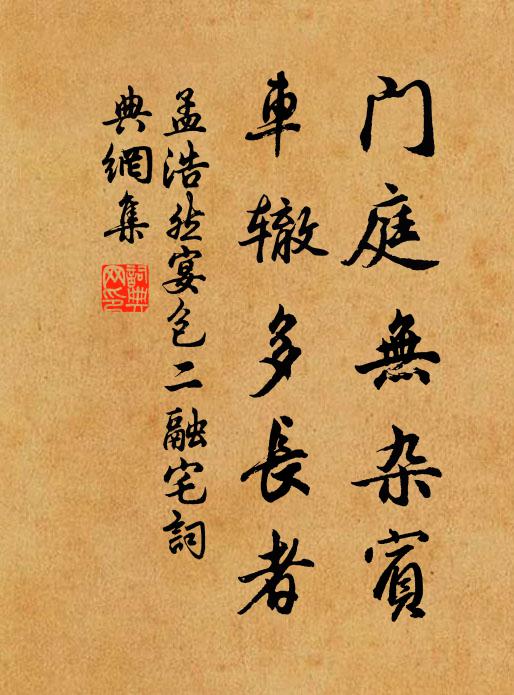 门庭無杂賓
車辙多長者
孟浩然宴包二融宅詞
典網集
詞典网印